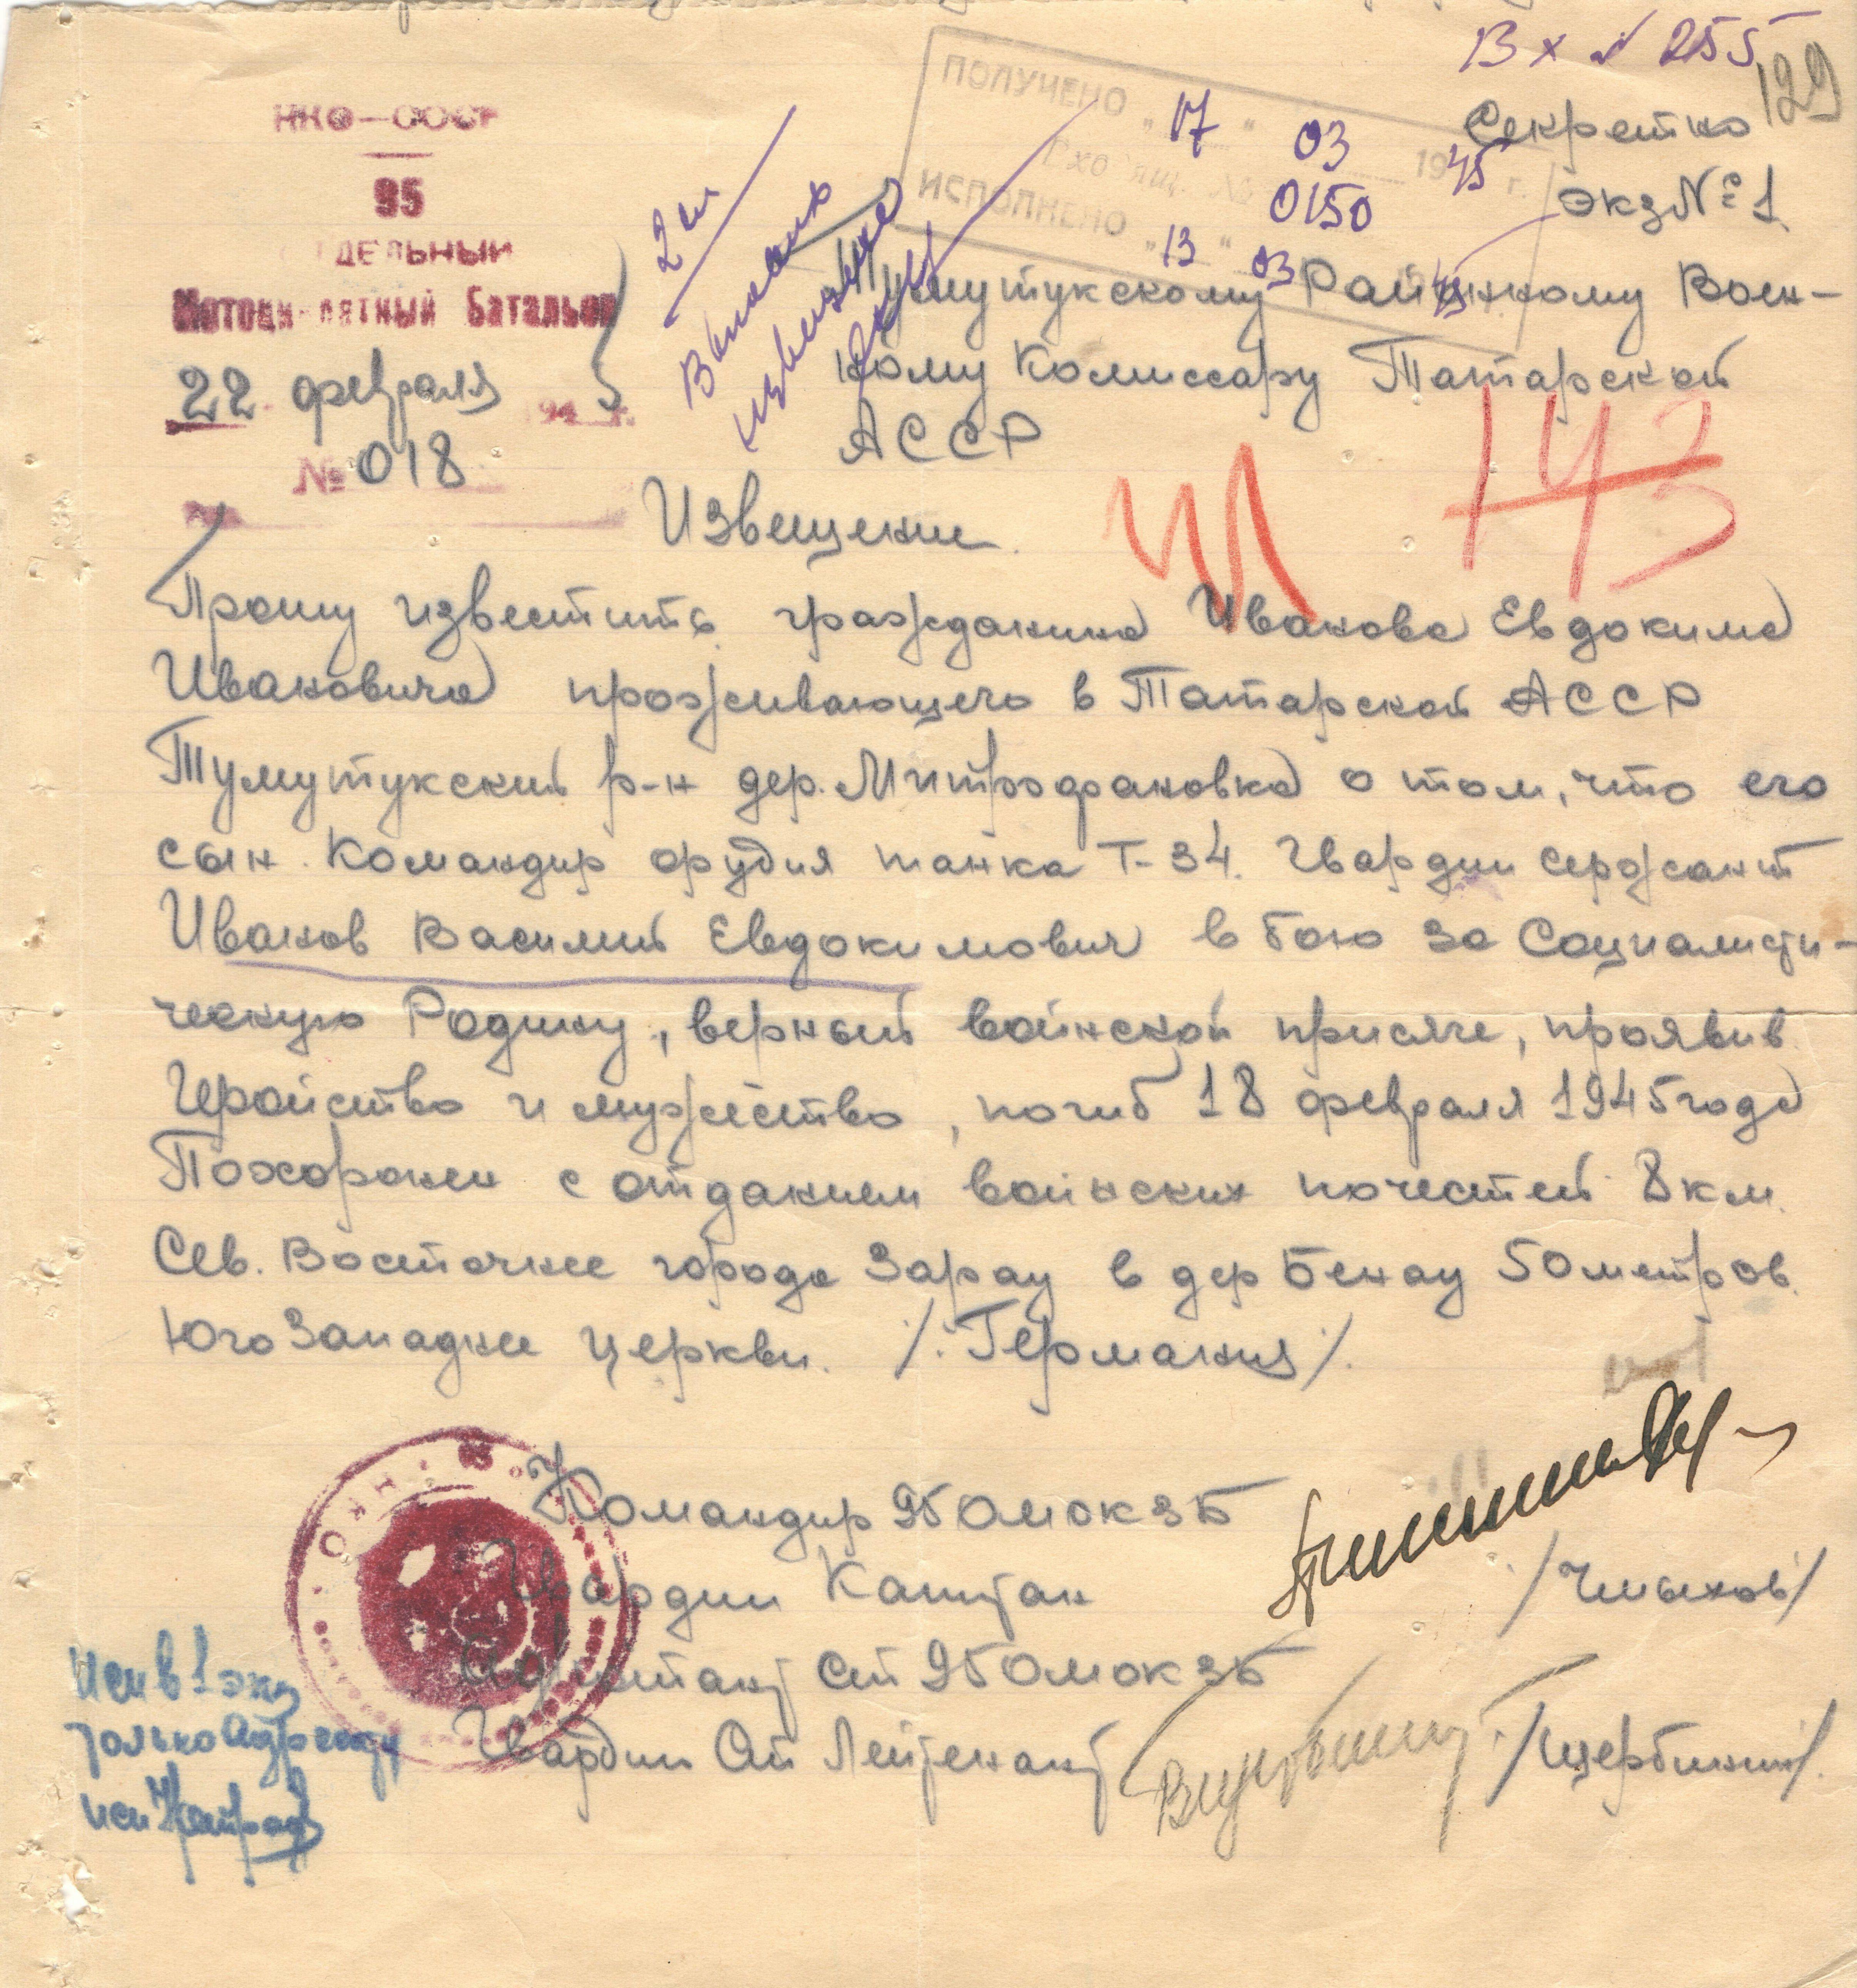 Вх № 255
129
Секретно
экз № 1
ПОЛУЧЕНО „17“ 03 1945 г.
0150
ИСПОЛНЕНО „13“ 03 45
НКО—СССР
95
ОТДЕЛЬНЫЙ
Мотоциклетный Батальон
22 февраля 194 г.
№ 018
2 эк
Выслать
извещение
Тумутукскому Районному Воен-
ному Комиссару Татарской
АССР
143
Извещение
Прошу известить гражданина Иванова Евдокима
Ивановича проживающего в Татарской АССР
Тумутукский р-н дер. Митрофановка о том, что его
сын. Командир орудия танка Т-34. Гвардии сержант
Иванов Василий Евдокимович в бою за Социалисти-
ческую Родину, верный воинской присяге, проявив
Геройство и мужество, погиб 18 февраля 1945 года
Похоронен с отданием воинских почестей 8 км.
Сев. Восточнее города Зарау в дер Бенау 50 метров
Юго Западнее церкви. /Германия/.
Командир 95 ОМОКЗБ
Гвардии Капитан /Чмыхов/
Адъютант Ст 95 ОМОКЗБ
Гвардии Ст Лейтенант /Щербинин/.
исп в 1 экз
только Адресату
исп